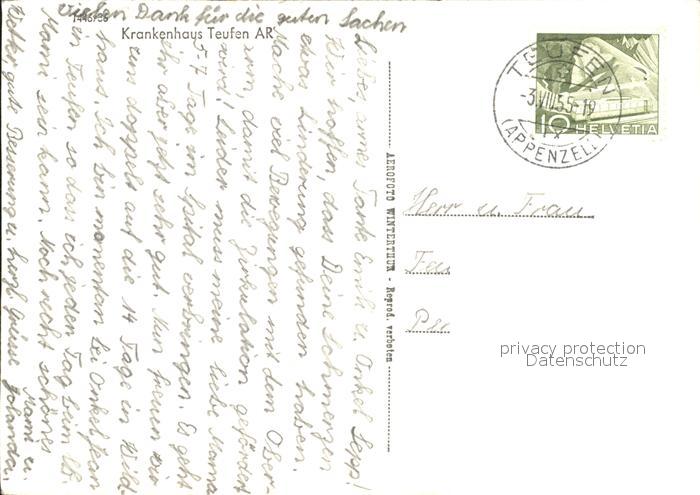 vielen Dank für die guten Sachen
Krankenhaus Teufen AR
Liebe, arme Tante Emili u. Onkel Sepp!
Wir hoffen, dass Deine Schmerzen
etwas Linderung gefunden haben.
Mache viel Bewegungen mit dem Ober-
arm, damit die Zirkulation gefördert
wird! Leider muss meine liebe Mama
5-7 Tage im Spital verbringen. Es geht
ihr aber jetzt sehr gut. Nun freuen wir
uns doppelt auf die 14 Tage in Wild-
haus. Ich bin momentan bei Onkel Jean
in Teufen so dass ich jeden Tag beim lb.
Mami sein kann. Noch recht schönes
Wetter gute Besserung u. herzl. Grüsse Mami u.
Jolanda.
AEROFOTO WINTERTHUR - Reprod. verboten
TEUFEN
-3.VIII.55-19
(APPENZELL)
10 HELVETIA
Herr u. Frau
privacy protection
Datenschutz